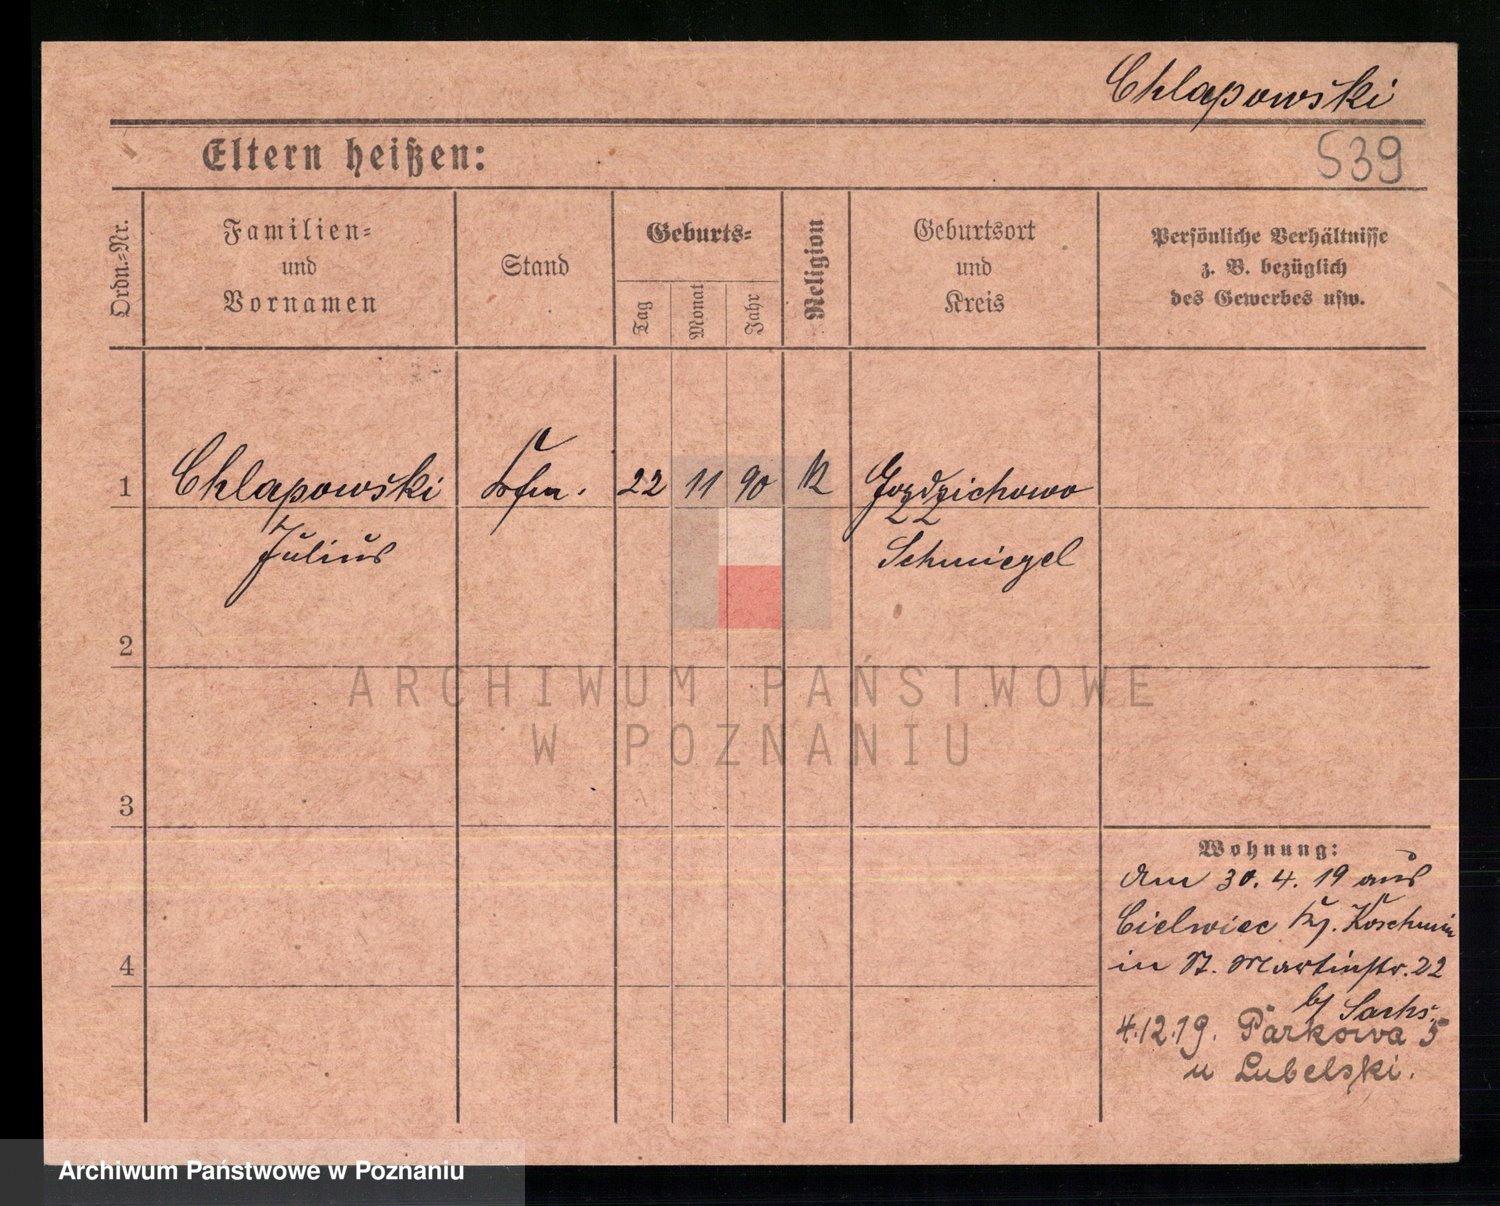 Chlapowski
539
Eltern heißen:
Ordn.-Nr.
Familien-
und
Vornamen
Stand
Geburts-
Tag
Monat
Jahr
Religion
Geburtsort
und
Kreis
Persönliche Verhältnisse
z. B. bezüglich
des Gewerbes usw.
1 Chlapowski Kfm. 22 11 90 K Gozdzichowo
Julius Schmiegel
2
ARCHIWUM PAŃSTWOWE
W POZNANIU
3
Wohnung:
Am 30. 4. 19 aus
Cielwiec Krs. Koschmin
4
in St. Martinstr. 22
bj Sachs.
4.12.19. Parkowa 5
u Lubelski.
Archiwum Państwowe w Poznaniu